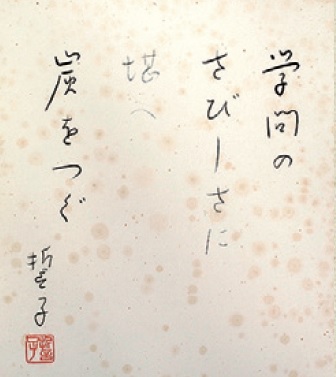 学問の
さびしさに
堪へ
炭をつぐ